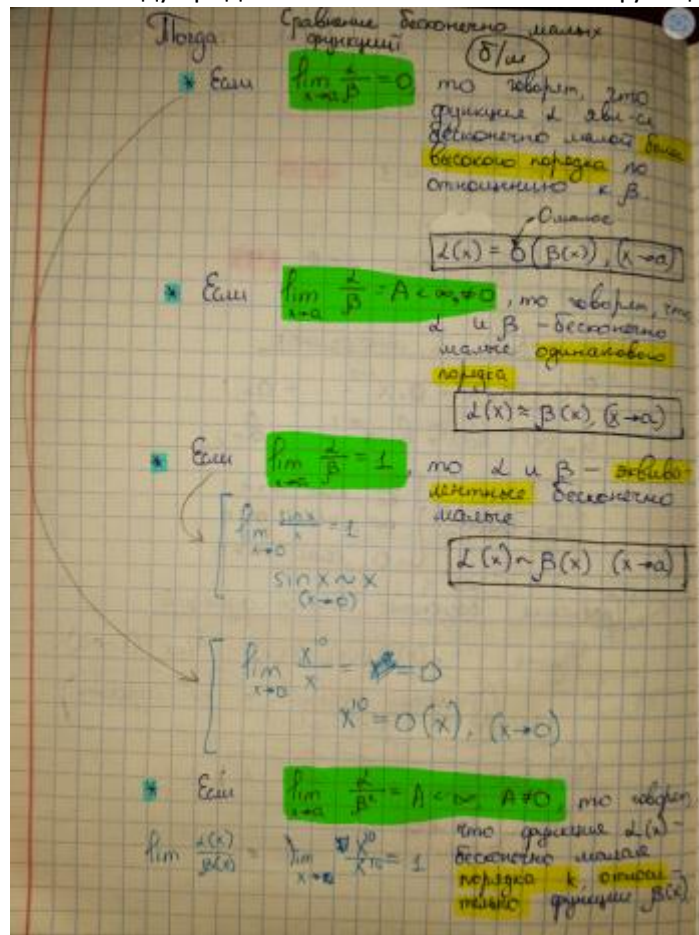 Тогда. Сравнение бесконечно малых
функций
б/м
* Если lim x→a α/β = 0 то говорят, что
функция α явл-ся
бесконечно малой более
высокого порядка по
отношению к β.
О малое
α(x) = o(β(x)), (x→a)
* Если lim x→a α/β = A < ∞, ≠0, то говорят, что
α и β – бесконечно
малые одинакового
порядка
α(x) ≈ β(x), (x→a)
* Если lim x→a α/β = 1, то α и β – эквива-
лентные бесконечно
малые
lim x→0 sinx/x = 1
α(x) ~ β(x) (x→a)
sin x ~ x
(x→0)
lim x→0 x^10/x = 0
x^10 = O(x), (x→0)
* Если lim x→a α/β^k = A < ∞, A≠0, то говорят,
что функция α(x) –
lim α(x)/β(x) = lim x^10/x^10 = 1 бесконечно малая
порядка k относи-
тельно функции β(x)